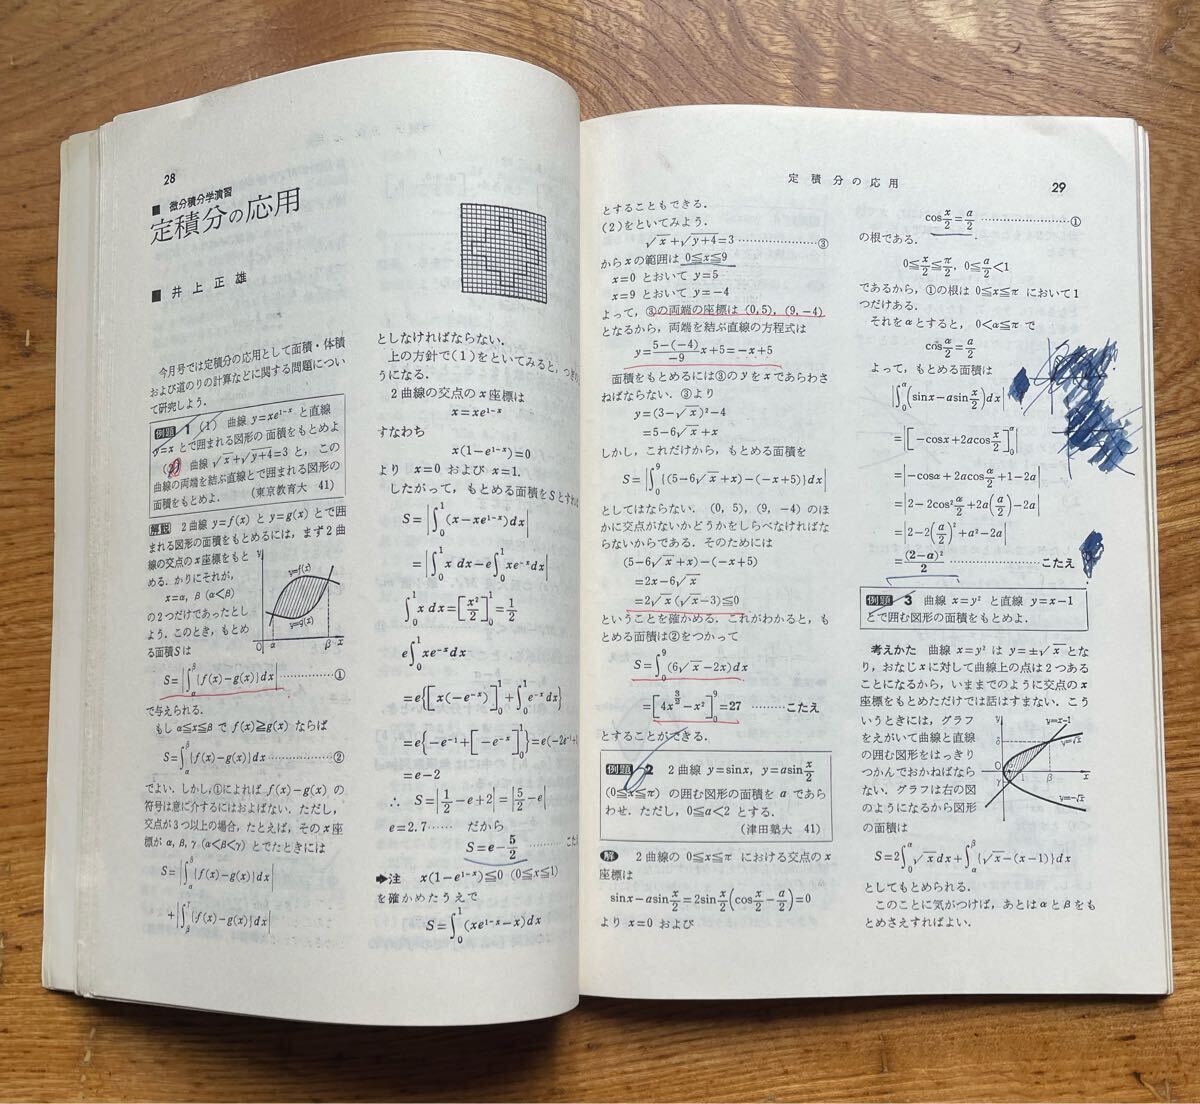 28
■ 微分積分学演習
定積分の応用
■ 井上正雄
今月号では定積分の応用として面積・体積
および道のりの計算などに関する問題につい
て研究しよう．
例題 1 (1) 曲線 y=xe^{1-x} と直線
y=x とで囲まれる図形の面積をもとめよ
(2) 曲線 √x+√(y+4)=3 と，この
曲線の両端を結ぶ直線とで囲まれる図形の
面積をもとめよ． (東京教育大 41)
解説 2曲線 y=f(x) と y=g(x) とで囲
まれる図形の面積をもとめるには，まず2曲
線の交点の x 座標をもと
める．かりにそれが，
x=α, β (α<β)
の2つだけであったとし
よう．このとき，もとめ
る面積Sは
y
y=f(x)
y=g(x)
O α β x
S=|∫_α^β{f(x)-g(x)}dx| ………①
で与えられる．
もし α≦x≦β で f(x)≧g(x) ならば
S=∫_α^β{f(x)-g(x)}dx………………②
でよい．しかし，①によれば f(x)-g(x) の
符号は意に介するにはおよばない．ただし，
交点が3つ以上の場合，たとえば，その x 座
標が α, β, γ (α<β<γ) とでたときには
S=|∫_α^β{f(x)-g(x)}dx|
+|∫_β^γ{f(x)-g(x)}dx|
としなければならない．
上の方針で(1)をといてみると，つぎの
うになる．
2曲線の交点の x 座標は
x=xe^{1-x}
すなわち
x(1-e^{1-x})=0
より x=0 および x=1.
したがって，もとめる面積をSとすれ
S=|∫_0^1(x-xe^{1-x})dx|
=|∫_0^1 x dx-e∫_0^1 xe^{-x}dx|
∫_0^1 x dx=[x²/2]_0^1=1/2
e∫_0^1 xe^{-x}dx
=e{[x(-e^{-x})]_0^1+∫_0^1 e^{-x}dx}
=e{-e^{-1}+[-e^{-x}]_0^1}=e(-2e^{-1}+
=e-2
∴ S=|1/2-e+2|=|5/2-e|
e=2.7…… だから
S=e-5/2 …………こた
➡注 x(1-e^{1-x})≦0 (0≦x≦1)
を確かめたうえで
S=∫_0^1(xe^{1-x}-x)dx
定積分の応用 29
とすることもできる．
(2)をといてみよう．
√x+√(y+4)=3 ………………③
から x の範囲は 0≦x≦9
x=0 とおいて y=5
x=9 とおいて y=-4
よって，③の両端の座標は (0,5), (9,-4)
となるから，両端を結ぶ直線の方程式は
y=(5-(-4))/(-9) x+5=-x+5
面積をもとめるには③の y を x であらわさ
ねばならない．③より
y=(3-√x)²-4
=5-6√x+x
しかし，これだけから，もとめる面積を
S=|∫_0^9{(5-6√x+x)-(-x+5)}dx|
としてはならない．(0, 5), (9, -4) のほ
かに交点がないかどうかをしらべなければな
らないからである．そのためには
(5-6√x+x)-(-x+5)
=2x-6√x
=2√x(√x-3)≦0
ということを確かめる．これがわかると，も
とめる面積は②をつかって
S=∫_0^9(6√x-2x)dx
=[4x^{3/2}-x²]_0^9=27 ………こたえ
とすることができる．
例題 2 2曲線 y=sinx, y=asin x/2
(0≦x≦π) の囲む図形の面積を a であら
わせ．ただし，0≦a<2 とする．
(津田塾大 41)
解 2曲線の 0≦x≦π における交点の x
座標は
sinx-asin x/2=2sin x/2(cos x/2-a/2)=0
より x=0 および
cos x/2=a/2 ………………①
の根である．
0≦x/2≦π/2, 0≦a/2<1
であるから，①の根は 0≦x≦π において1
つだけある．
それを α とすると，0<α≦π で
cos α/2=a/2
よって，もとめる面積は
|∫_0^α(sinx-asin x/2)dx|
=|[-cosx+2acos x/2]_0^α|
=|-cosα+2acos α/2+1-2a|
=|2-2cos² α/2+2a(a/2)-2a|
=|2-2(a/2)²+a²-2a|
=(2-a)²/2 ………………こたえ
例題 3 曲線 x=y² と直線 y=x-1
とで囲む図形の面積をもとめよ．
考えかた 曲線 x=y² は y=±√x とな
り，おなじ x に対して曲線上の点は2つある
ことになるから，いままでのように交点の x
座標をもとめただけでは話はすまない．こう
いうときには，グラフ
をえがいて曲線と直線
の囲む図形をはっきり
つかんでおかねばなら
ない．グラフは右の図
のようになるから図形
の面積は
y
y=x-1
y=√x
O 1 β x
y=-√x
S=2∫_0^α√x dx+∫_α^β{√x-(x-1)}dx
としてもとめられる．
このことに気がつけば，あとは α と β をも
とめさえすればよい．